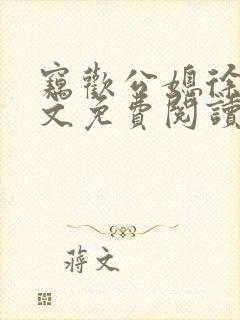 竊歡公媳徐
文免費閱讀
蔣文